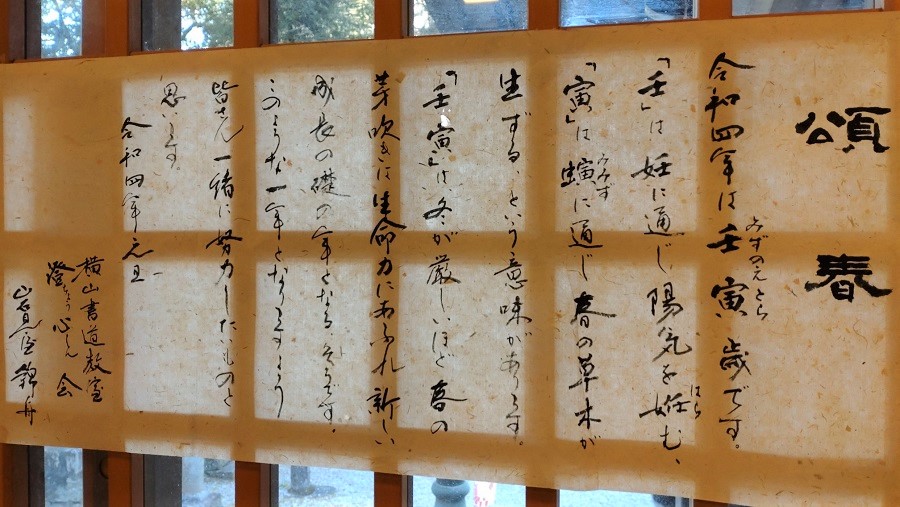 頌春
令和四年は壬寅歳です。
みずのえとら
「壬」は妊に通じ陽気を妊む、
はら
「寅」は螾に通じ春の草木が
みみず
生ずる、という意味があります。
「壬寅」は、冬が厳しいほど春の
芽吹きは生命力にあふれ新しい
成長の礎の年となるそうです。
このような一年となりますよう
皆さん一緒に努力したいものと
思います。
令和四年元旦
横山書道教室
会